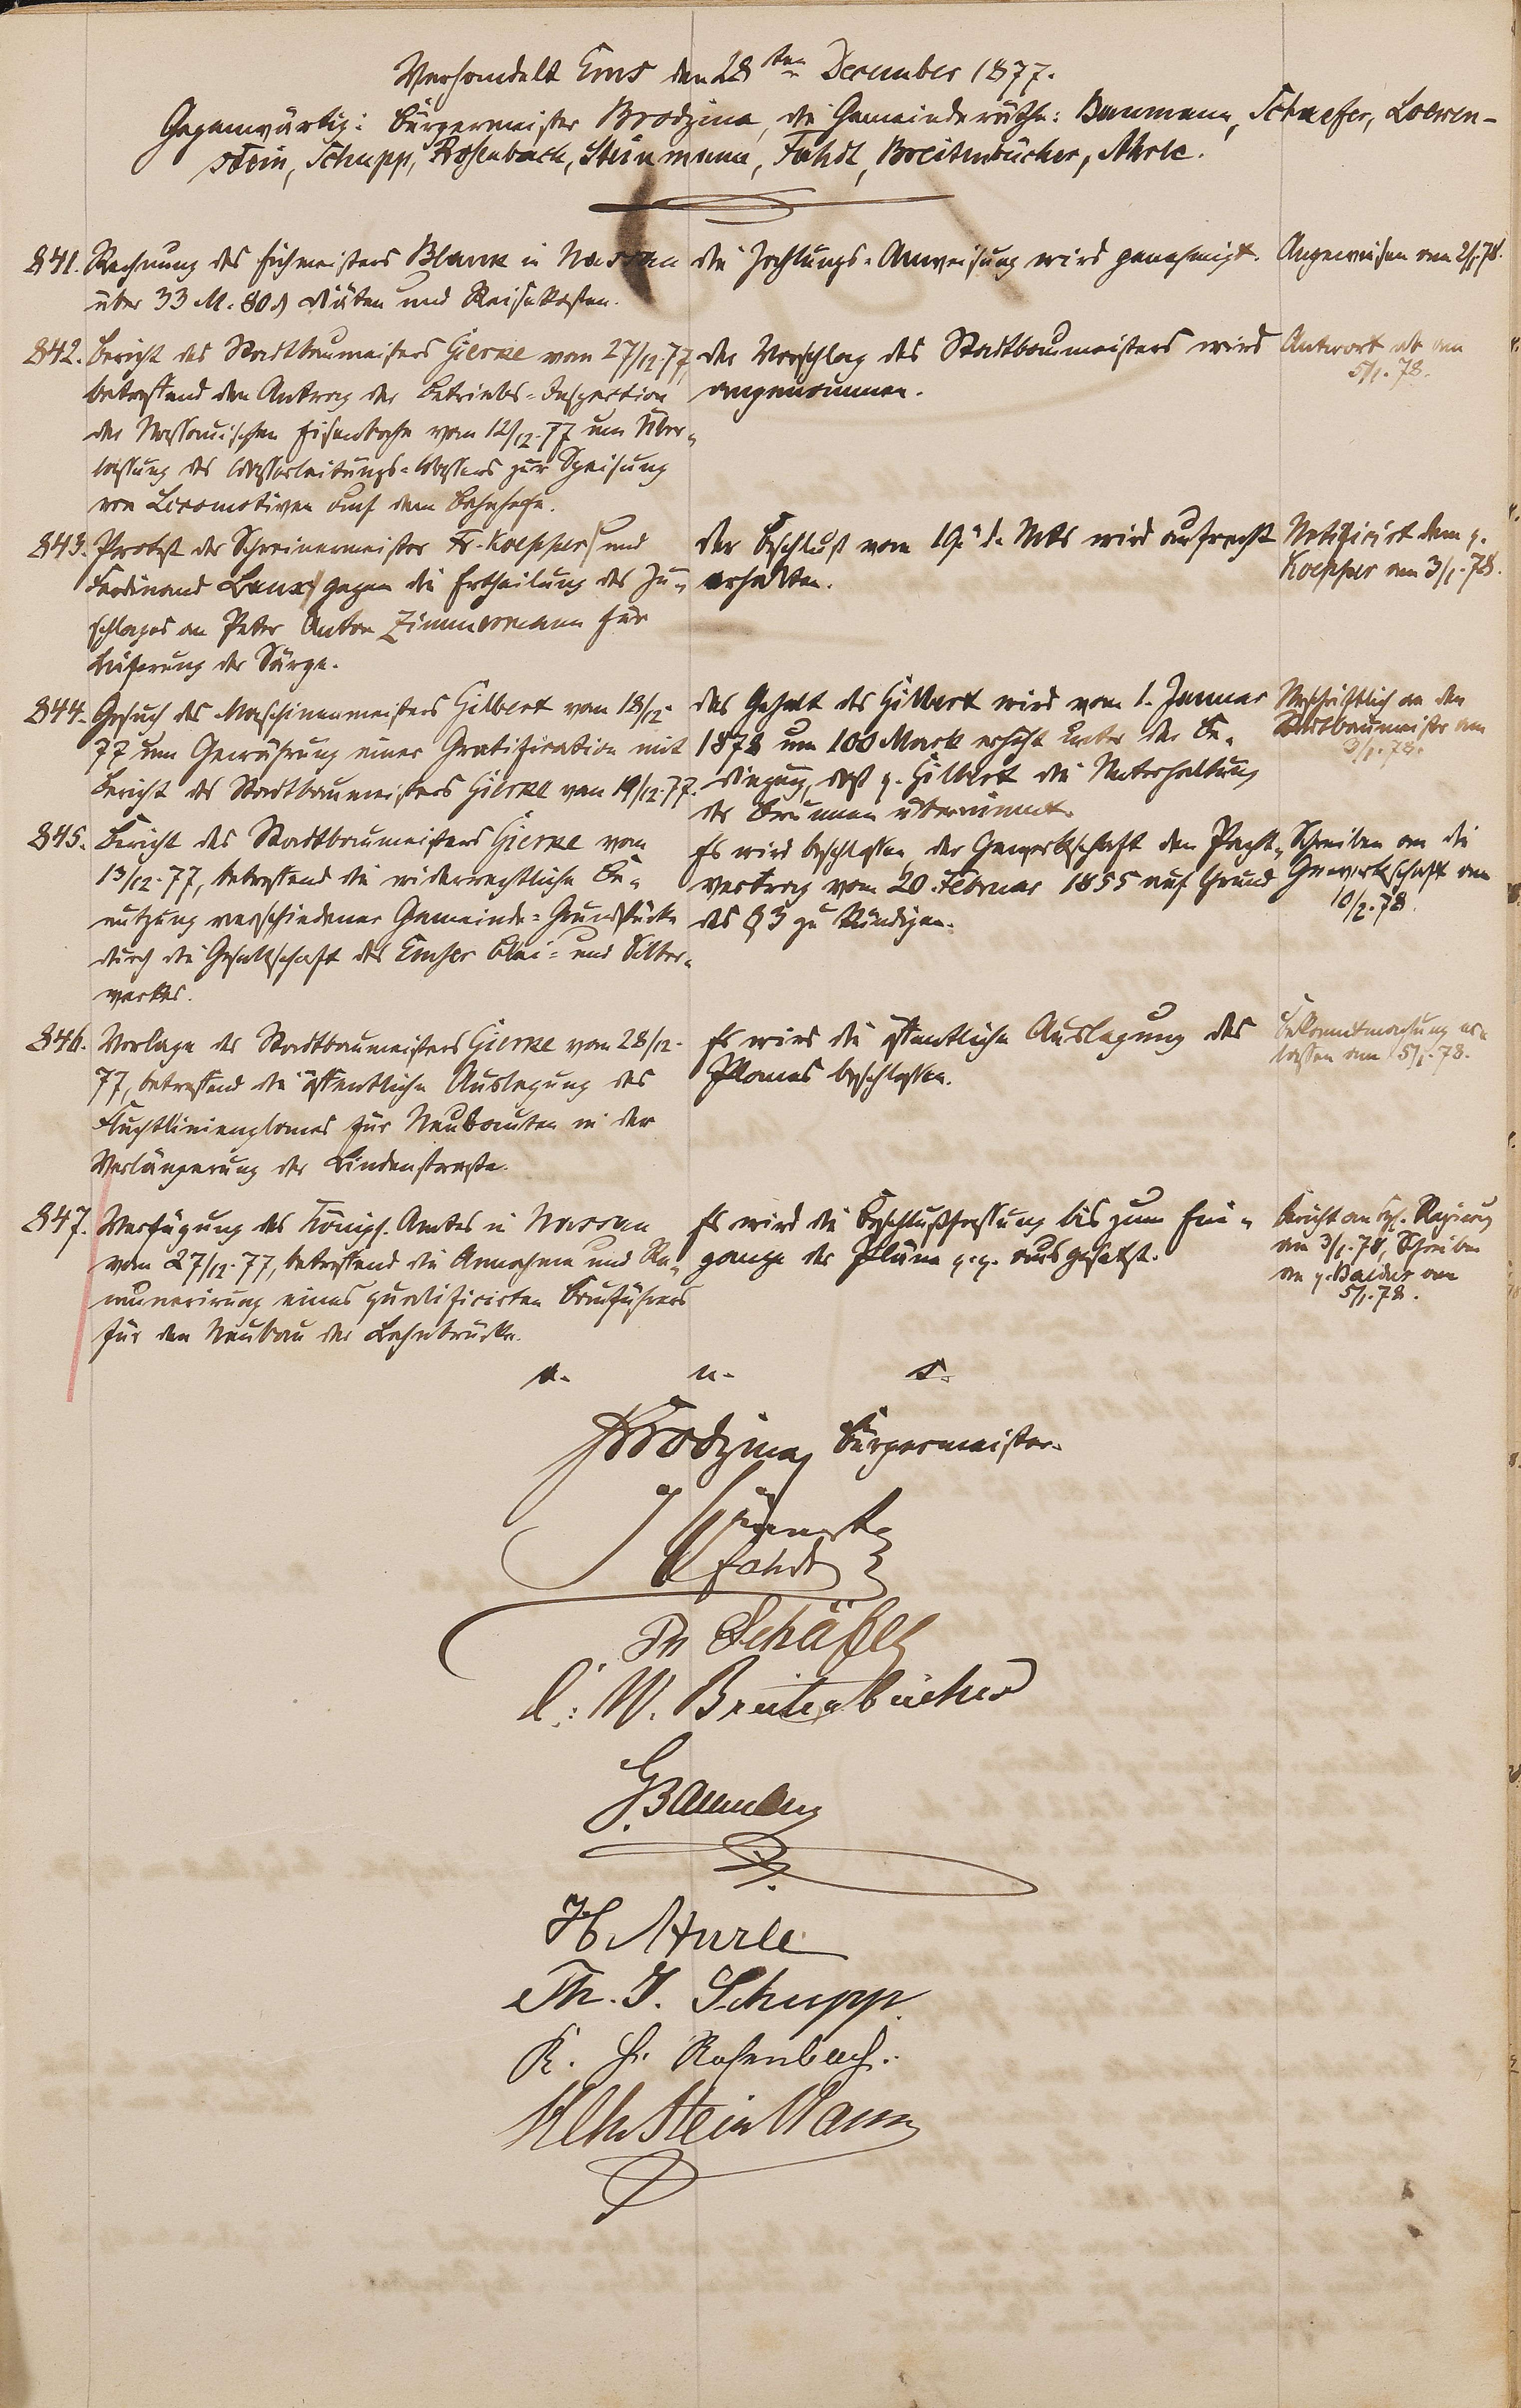 Verhandelt Ems den 28ten December 1877.
Gegenwärtig: Bürgermeister Brodzina, die Gemeinderäthe: Baumann, Schaefer, Loewen-
stein, Schupp, Rosenbach, Steinmann, Fahdt, Breitenbücher, Ahrle.
841. Rechnung des Eichmeisters Blank in Nassau
über 33 M. 80 ₰ Diäten und Reisekosten.
die Zahlungs-Anweisung wird genehmigt.
Angewiesen am 2/1.78.
842. Bericht des Stadtbaumeisters Gierke vom 27/12.77,
betreffend den Antrag der Betriebs-Inspection
der Nassauischen Eisenbahn vom 12/12.77 um Über-
lassung des Wasserleitungs-Wassers zur Speisung
von Locomotiven auf dem Bahnhofe.
der Vorschlag des Stadtbaumeisters wird
angenommen.
Antwort ab am
5/1.78.
843. Protest der Schreinermeister Fr. Koepper und
Ferdinand Lanz gegen die Ertheilung des Zu-
schlages an Peter Anton Zimmermann für
Lieferung der Särge.
der Beschluß vom 19. d. Mts wird aufrecht
erhalten.
Notificirt dem p.
Koepper am 3/1.78.
844. Gesuch des Maschinenmeisters Gilbert vom 18/12.
77 um Gewährung einer Gratification mit
Bericht des Stadtbaumeisters Gierke vom 19/12.77.
das Gehalt des Gilbert wird vom 1. Januar
1878 um 100 Mark erhöht unter der Be-
dingung, daß p. Gilbert die Unterhaltung
der Brunnen übernimmt.
Abschriftlich an den
Stadtbaumeister am
3/1.78.
845. Bericht des Stadtbaumeisters Gierke vom
13/12.77, betreffend die widerrechtliche Be-
nutzung verschiedener Gemeinde-Grundstücke
durch die Gesellschaft des Emser Blei- und Silber-
werkes.
Es wird beschlossen, der Gewerkschaft den Pacht-
vertrag vom 20. Februar 1855 auf Grund
des § 3 zu kündigen.
Schreiben an die
Gewerkschaft am
10/2.78
846. Vorlage des Stadtbaumeisters Gierke vom 28/12.
77, betreffend die öffentliche Auslegung des
Fluchtlinienplanes für Neubauten in der
Verlängerung der Lindenstraße.
Es wird die öffentliche Auslegung des
Planes beschlossen.
Bekanntmachung er-
lassen am 5/1.78.
847. Verfügung des Königl. Amtes in Nassau
vom 27/12.77, betreffend die Annahme und Re-
munerirung eines qualificirten Bauführers
für den Neubau der Lahnbrücke.
Es wird die Beschlußfassung bis zum Ein-
gange der Pläne p.p. ausgesetzt.
Bericht an Kgl. Regierung
am 3/1.78, Schreiben
an p. am
5/1.78.
v. u. s.
Brodzina, Bürgermeister.
Fahdt
Ph Schäfer
C: W. Breitenbücher
G. Baumann
H. Ahrle
Th. J. Schupp.
K. H. Rosenbach.
Wlh Steinmann